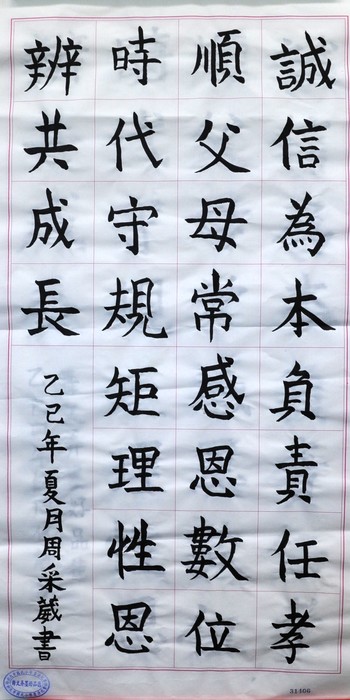 誠信為本負責任孝
順父母常感恩數位
時代守規矩理性恩
辨共成長
乙巳年夏月周采葳書
31406